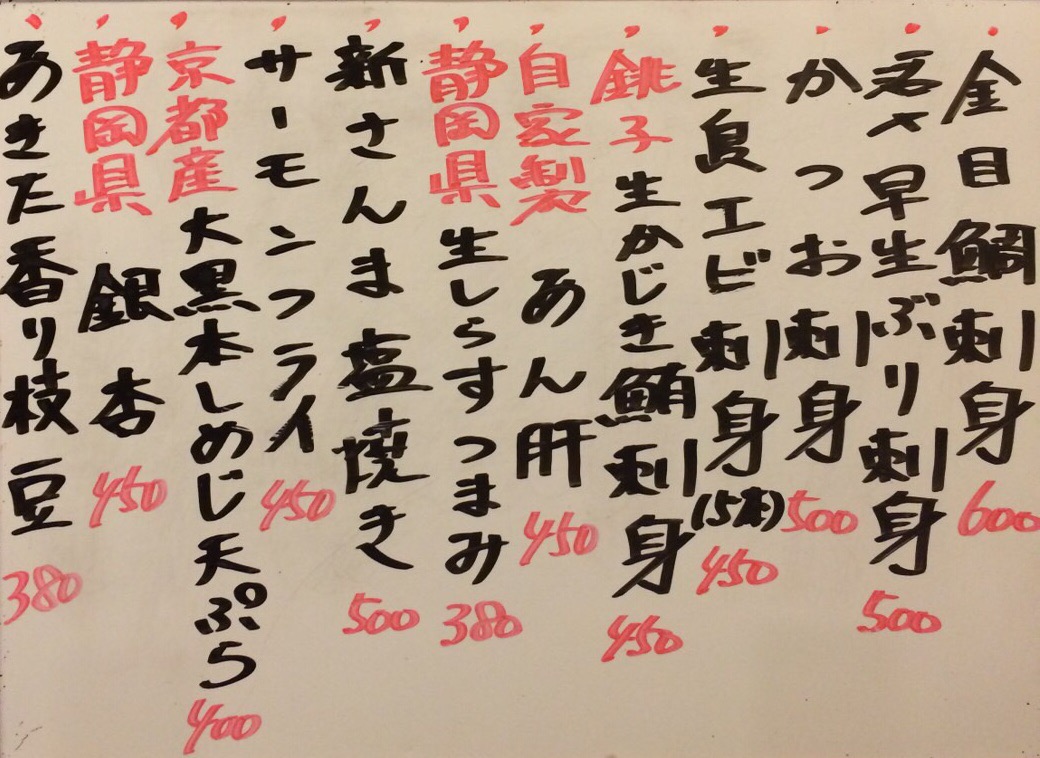 金目鯛刺身 600
若さ早生ぶり刺身 500
かつお刺身 500
生食エビ刺身(5本) 450
銚子生かじき鮪刺身 450
自家製あん肝 450
静岡県生しらすつまみ 380
新さんま塩焼き 500
サーモンフライ 450
京都産大黒本しめじ天ぷら 400
静岡県銀杏 450
あきた香り枝豆 380